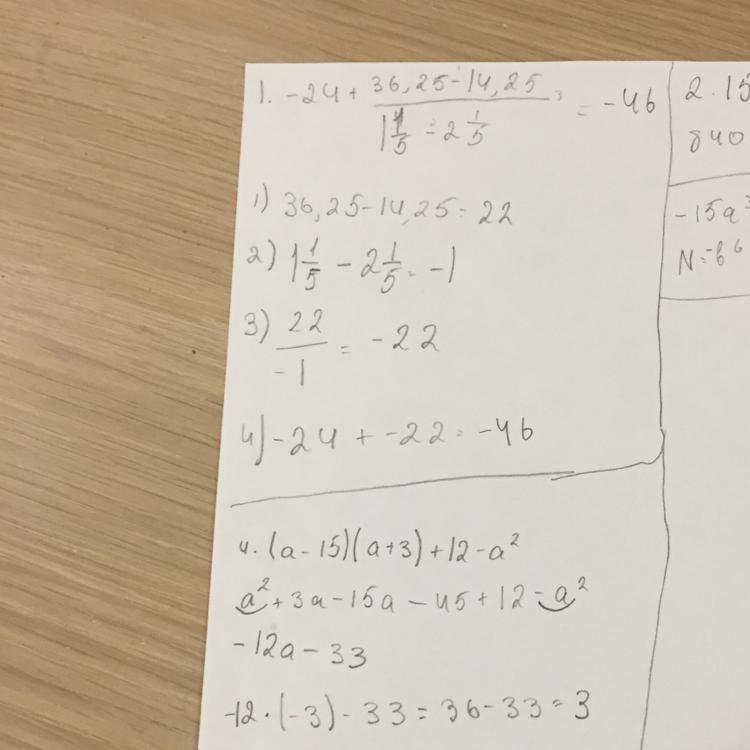 1. -24 + 36,25 - 14,25 / 1 1/5 - 2 1/5 = -46
1) 36,25 - 14,25 = 22
2) 1 1/5 - 2 1/5 = -1
3) 22 / -1 = -22
4) -24 + -22 = -46
4. (a - 15)(a + 3) + 12 - a²
a² + 3a - 15a - 45 + 12 - a²
-12a - 33
-12 · (-3) - 33 = 36 - 33 = 3
2. 15
840
-15a³
N = -b⁶